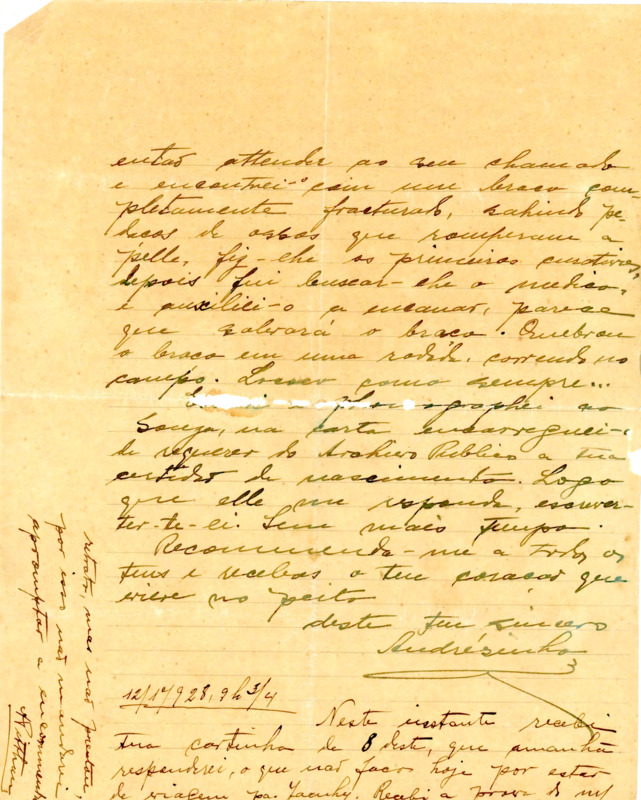 então attender ao seu chamado
e encontrei-o com um braço com-
pletamente fracturado, sahindo pe-
daços de ossos que romperam a
pelle, fiz-lhe os primeiros curativos,
depois fui buscar-lhe o medico,
e auxiliei-o a encanar, parece
que salvará o braço. Quebrou
o braço em uma rodada, correndo no
campo. Louco como sempre...
ao
Souza, na carta encarreguei-
de requerer do Archivo Publico a tua
certidão de nascimento. Logo
que elle me responda, escrever-
ter-te-ei. Sem mais tempo.
Recommenda-me a todos os
teus e recebas o teu coração que
vive no peito
deste teu sincero
Andrézinho
12/1º/928, 9h 3/4
Neste instante recebi
tua cartinha de 8 deste, que amanhã
responderei, o que não faço hoje por estar
de viagem pa. Jacuhy. Recebi a prova do
retrato, mas não prestou,
por isso não mandei
apromptar a encommenda